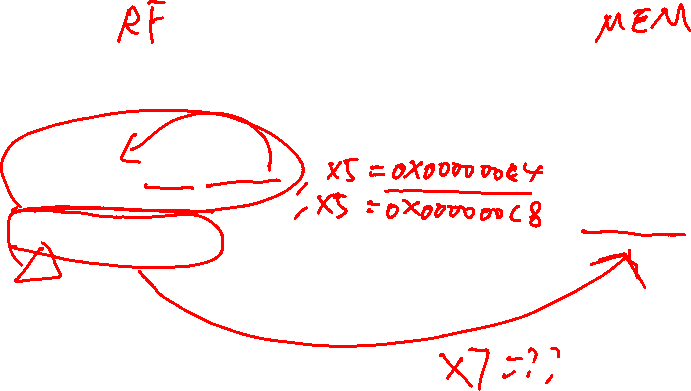 RF
MEM
, x5 = 0x000000e4
, x5 = 0x000000C8
x7 = ??